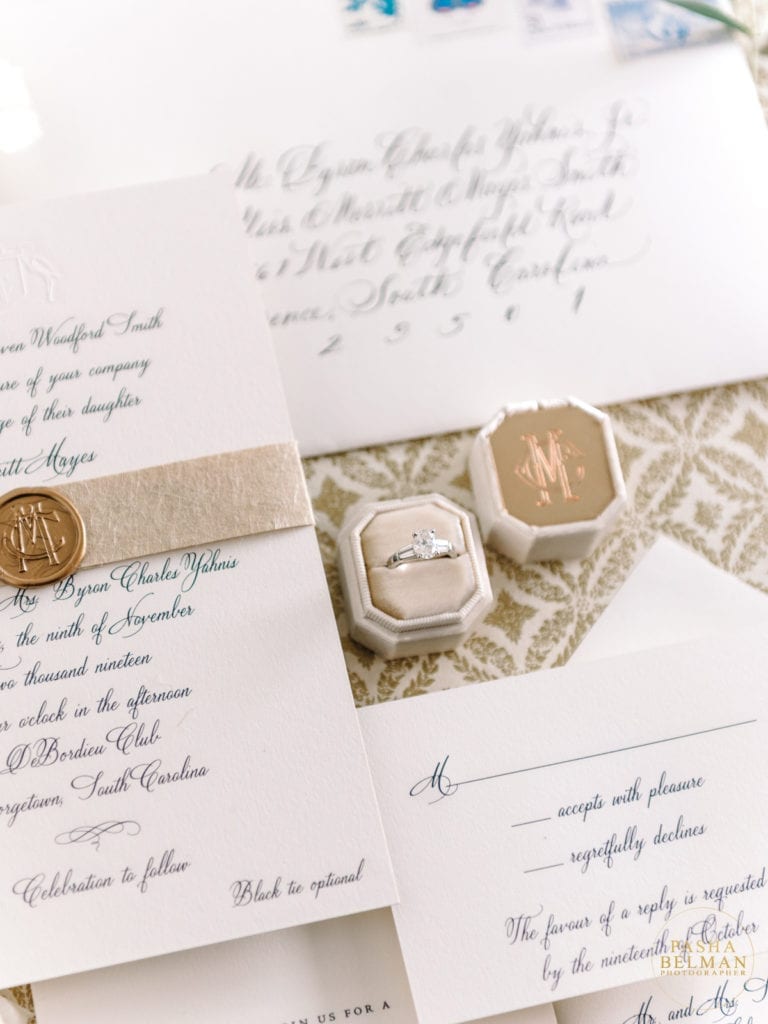 Byron Charles Yahnis Jr
Merritt Mayes Smith
West Edgefield Road
South Carolina
2 9 5 0 1
ven Woodford Smith
ure of your company
ge of their daughter
itt Mayes
Mrs. Byron Charles Yahnis
, the ninth of November
wo thousand nineteen
r o'clock in the afternoon
DeBordieu Club
orgetown, South Carolina
Celebration to follow
Black tie optional
M
accepts with pleasure
regretfully declines
The favour of a reply is requested
by the nineteenth of October
PASHA
BELMAN
PHOTOGRAPHER
Mr. and Mrs. S
IN US FOR A